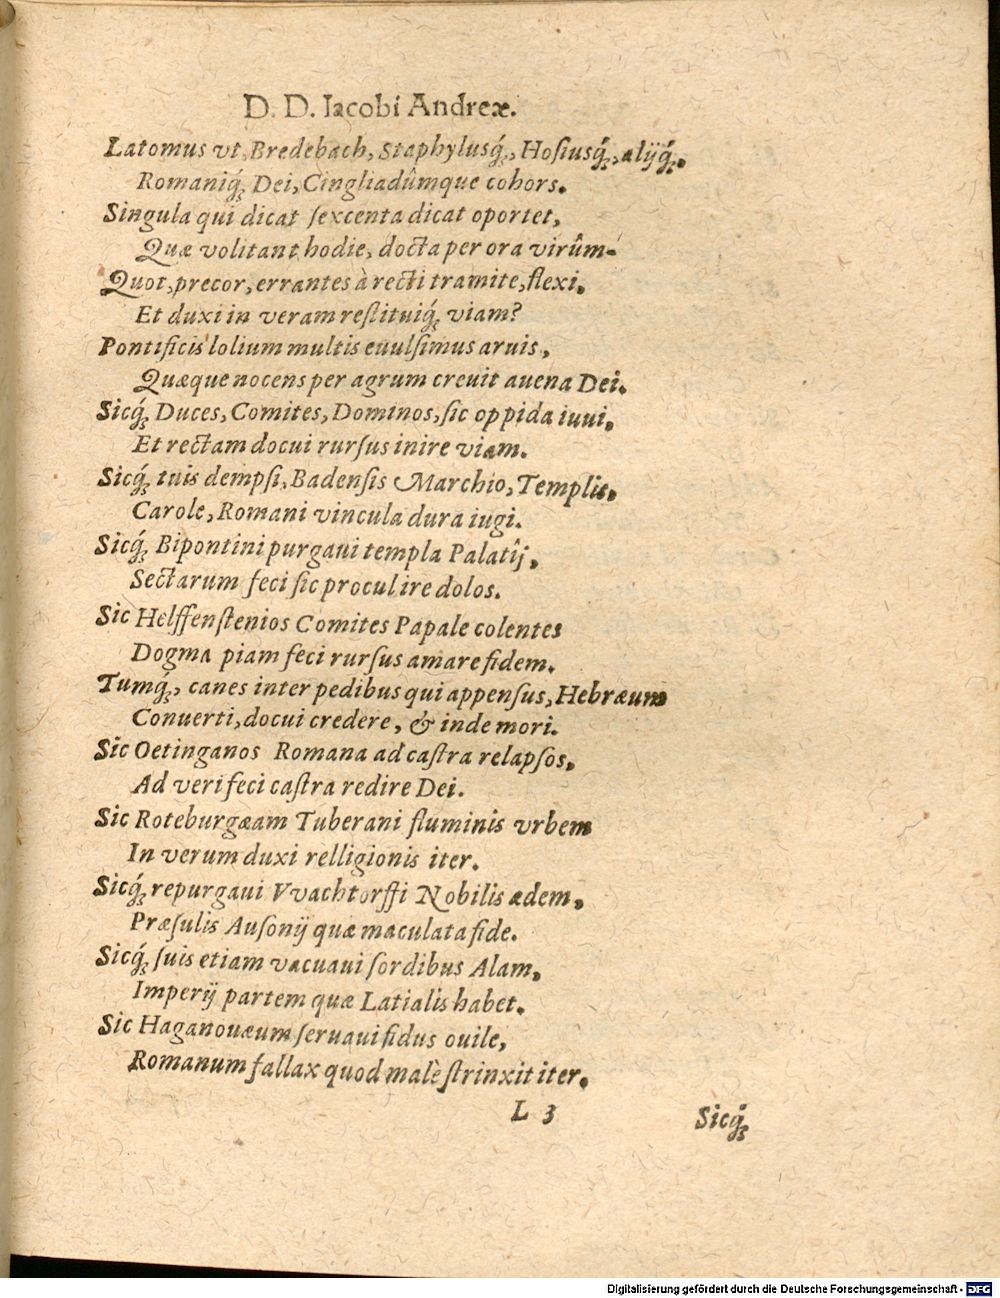 D. D. Iacobi Andreæ.
Latomus vt, Bredebach, Staphylusq́ꝫ, Hoſiusq́ꝫ, alijq́ꝫ.
Romaniq́ꝫ Dei, Cingliadûmque cohors.
Singula qui dicat ſexcenta dicat oportet,
Quæ volitant hodie, docta per ora virûm.
Quot, precor, errantes à recti tramite, flexi,
Et duxi in veram reſtituiq́ꝫ viam?
Pontificis lolium multis euulſimus aruis,
Quæque nocens per agrum creuit auena Dei.
Sicq́ꝫ Duces, Comites, Dominos, ſic oppida iuui,
Et rectam docui rurſus inire viam.
Sicq́ꝫ tuis dempſi, Badenſis Marchio, Templis,
Carole, Romani vincula dura iugi.
Sicq́ꝫ Bipontini purgaui templa Palatîj,
Sectarum feci ſic procul ire dolos.
Sic Helffenſtenios Comites Papale colentes
Dogma piam feci rurſus amare fidem.
Tumq́ꝫ, canes inter pedibus qui appenſus, Hebræum
Conuerti, docui credere, & inde mori.
Sic Oetinganos Romana ad caſtra relapſos,
Ad veri feci caſtra redire Dei.
Sic Roteburgæam Tuberani fluminis vrbem
In verum duxi relligionis iter.
Sicq́ꝫ repurgaui Vvachtorffi Nobilis ædem,
Præſulis Auſonij quæ maculata fide.
Sicq́ꝫ ſuis etiam vacuaui ſordibus Alam,
Imperij partem quæ Latialis habet.
Sic Haganouæum ſeruaui fidus ouile,
Romanum fallax quod malè ſtrinxit iter.
L 3 Sicq́ꝫ
Digitalisierung gefördert durch die Deutsche Forschungsgemeinschaft - DFG